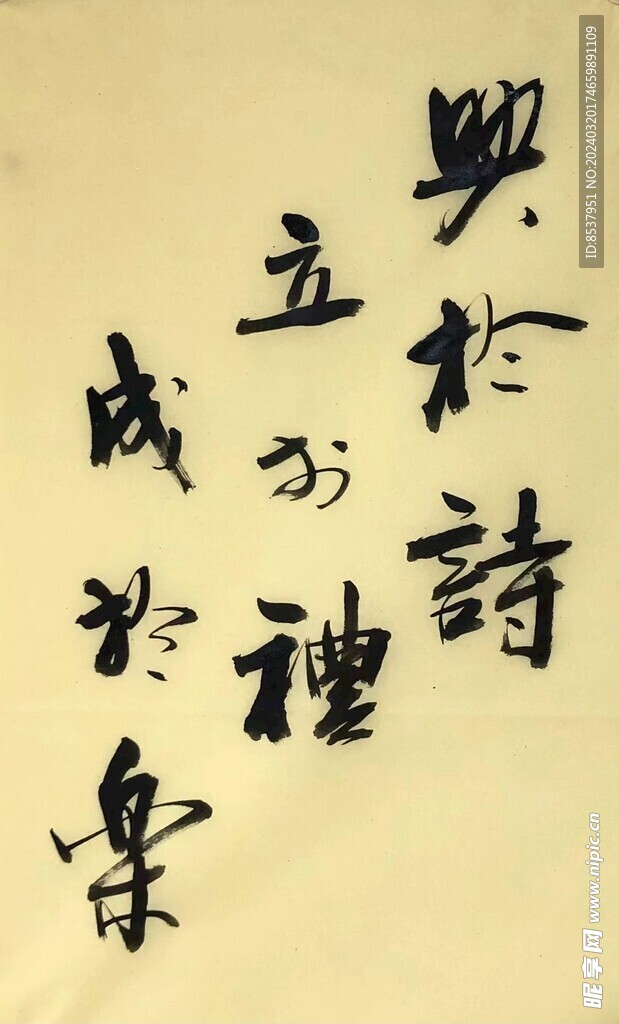 興於詩
立於禮
成於樂
ID:8537951 NO:20240320174659891109
昵享网 www.nipic.cn